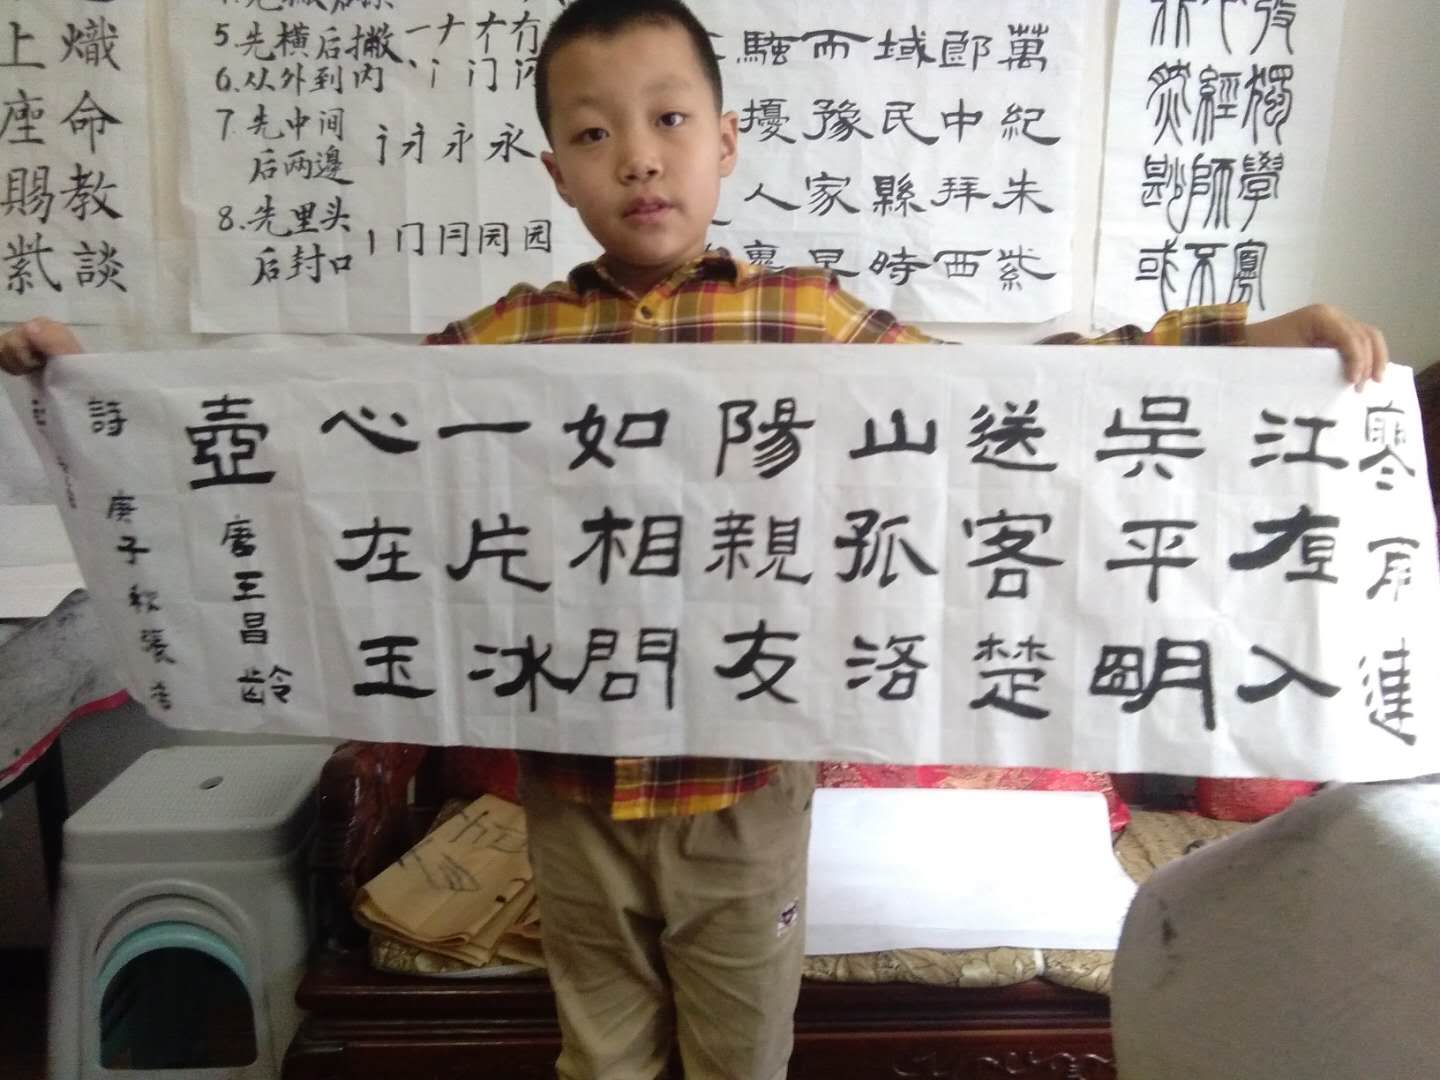 寒雨連
江夜入
吳平明
送客楚
山孤洛
陽親友
如相問
一片冰
心在玉
壺
唐王昌齡
詩
庚子秋張
熾命教談
上座賜紫
5.先横后撇
6.从外到内
7.先中间
后两邊
永永
8.先里头
后封口
门 园
萬紀朱紫
中拜西
域民縣時
而豫家早
騷擾人
獨學鳳
經師不
或